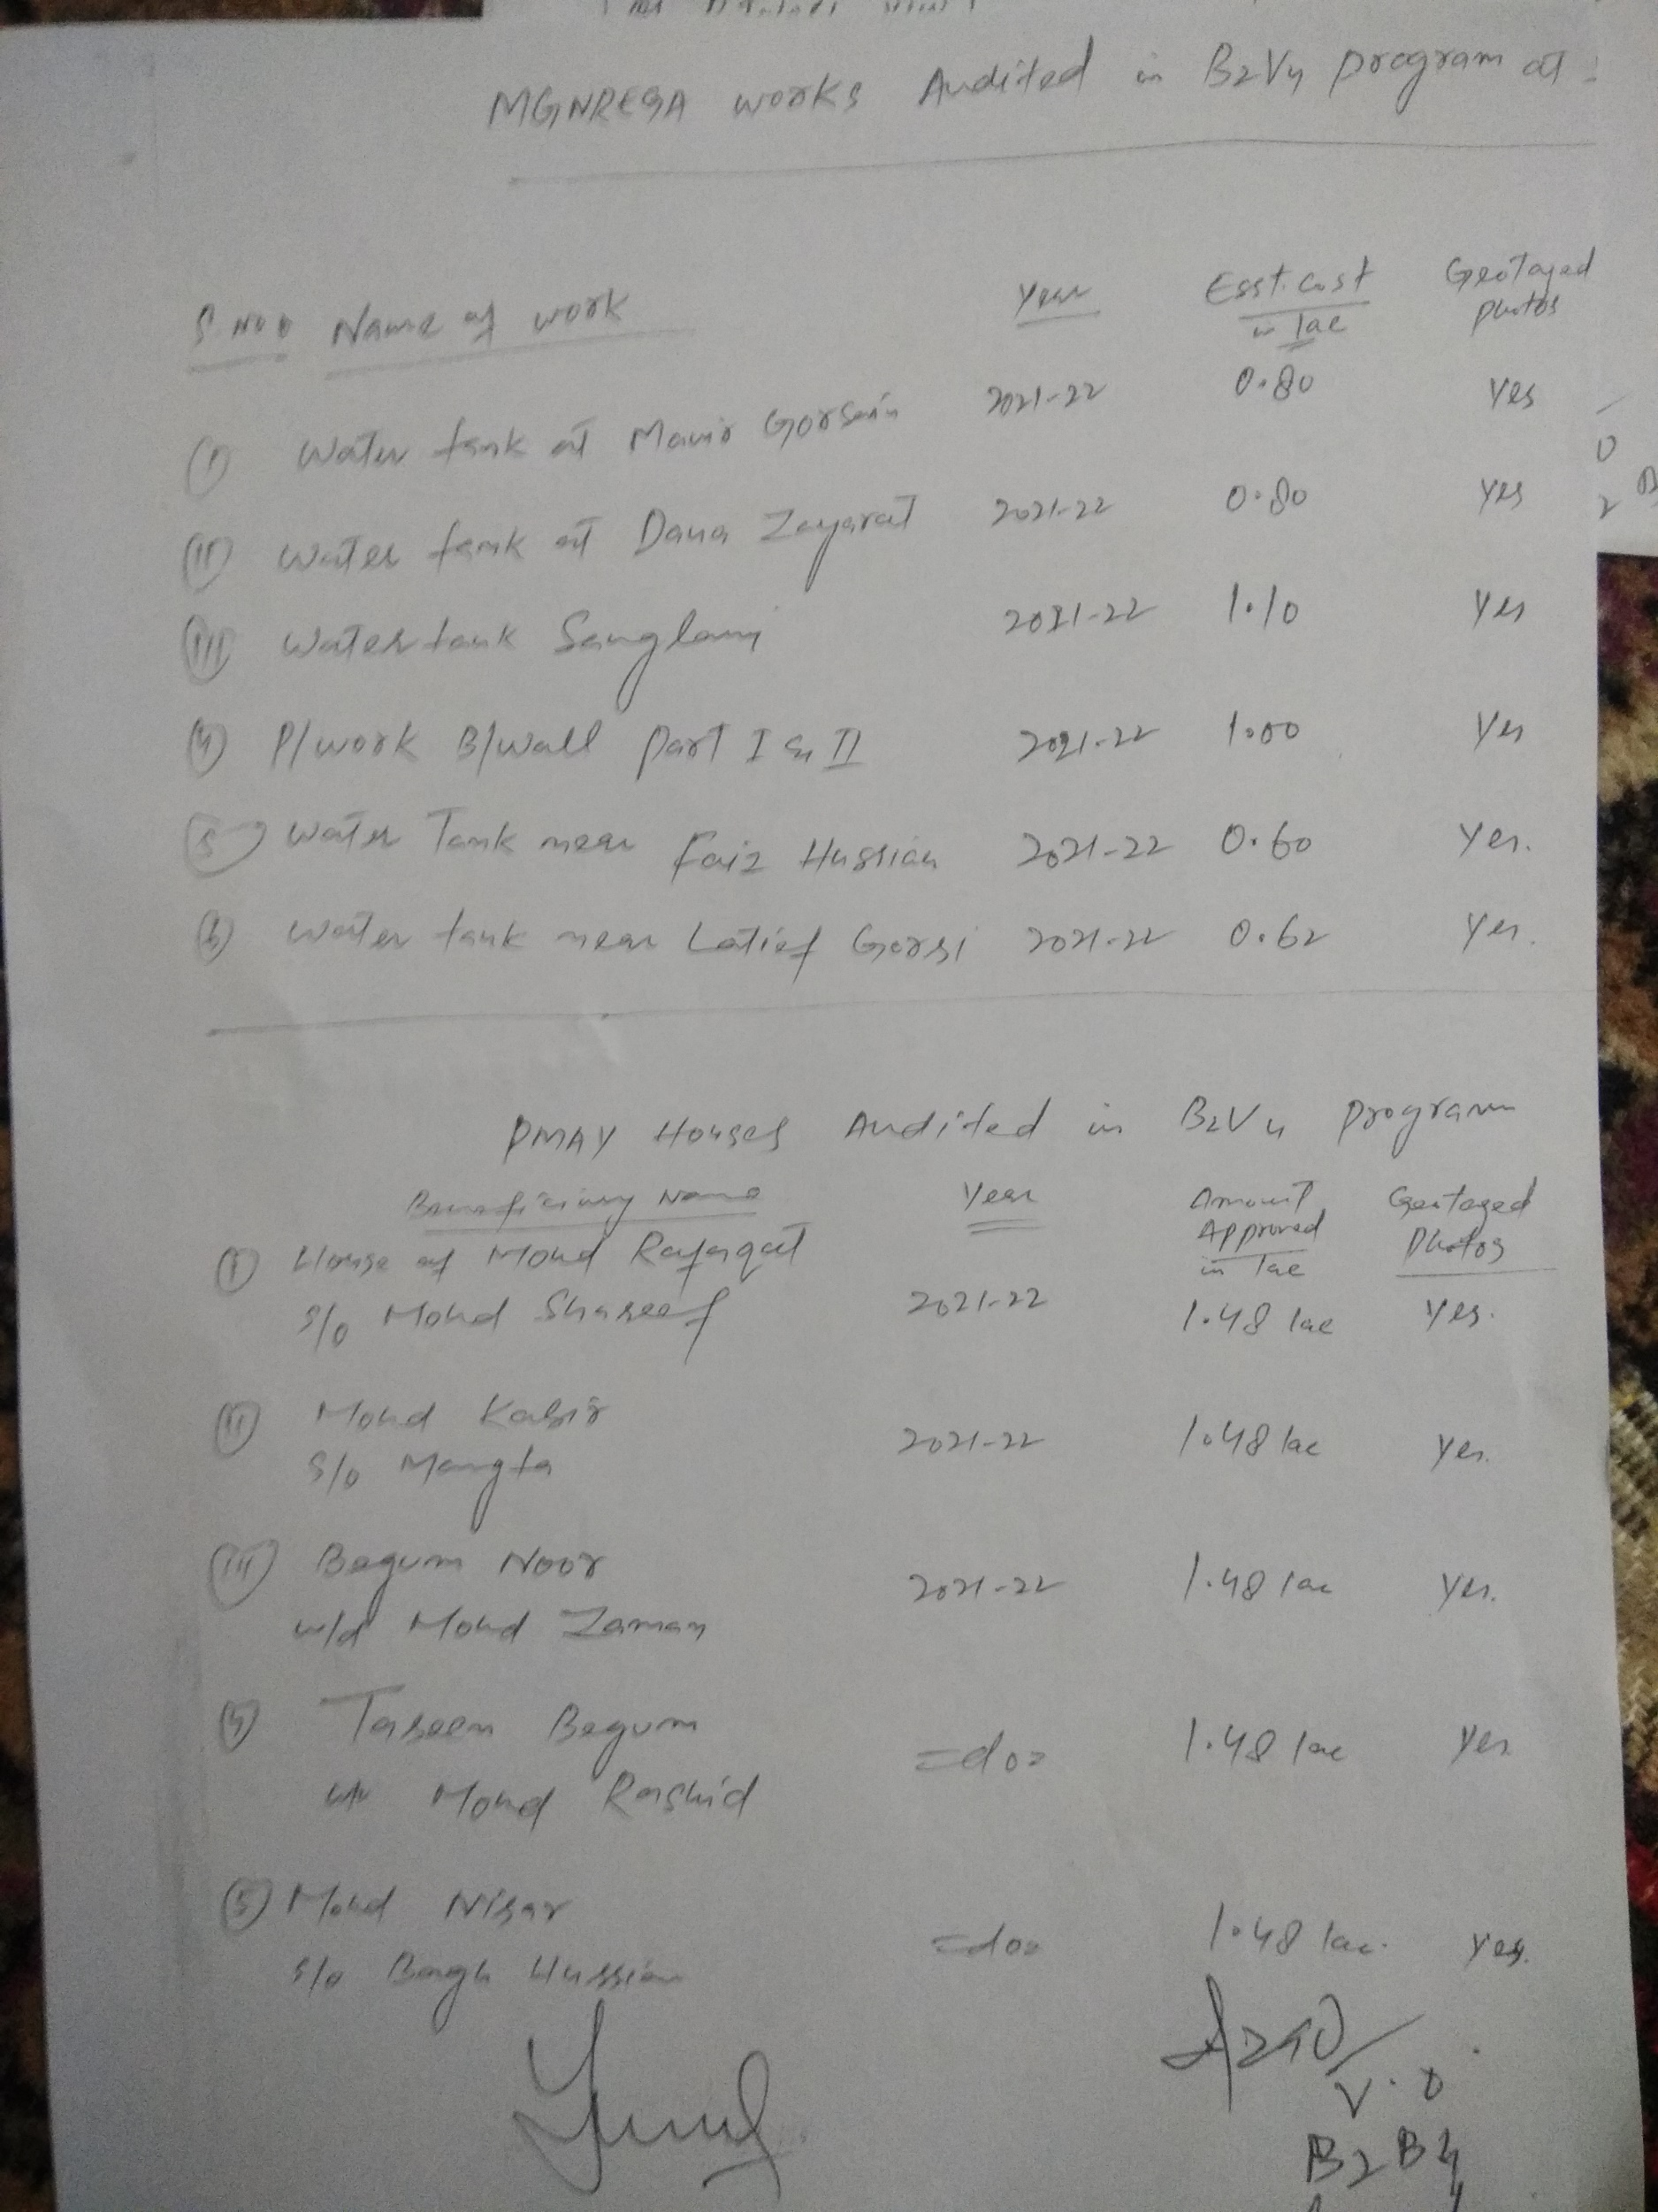 MGNREGA works Audited in B2V4 program at :
S.No Name of work Year Esst. cost in lac Geotaged photos
(I) Water tank at Gorsain 2021-22 0.80 Yes
(II) Water tank at Dana Zayarat 2021-22 0.80 Yes
(III) Water tank 2021-22 1.10 Yes
(4) P/work B/wall Part I & II 2021-22 1.00 Yes
(5) Water Tank near Faiz Hussian 2021-22 0.60 Yes.
(6) Water tank near Latief Gorsi 2021-22 0.62 Yes.
PMAY Houses Audited in B2V4 program
Beneficiary Name Year Amount Approved in lac Geotaged Photos
(I) House of Mohd Rafaqat
s/o Mohd Shareef 2021-22 1.48 lac Yes.
(II) Mohd Kabir
s/o Mangta 2021-22 1.48 lac Yes.
(III) Begum Noor
w/d Mohd Zaman 2021-22 1.48 lac Yes.
(4) Taseem Begum
Mohd Rashid =do= 1.48 lac Yes
(5) Mohd Nisar
s/o Bagh Hussian =do= 1.48 lac. Yes.
V.O
B2B4